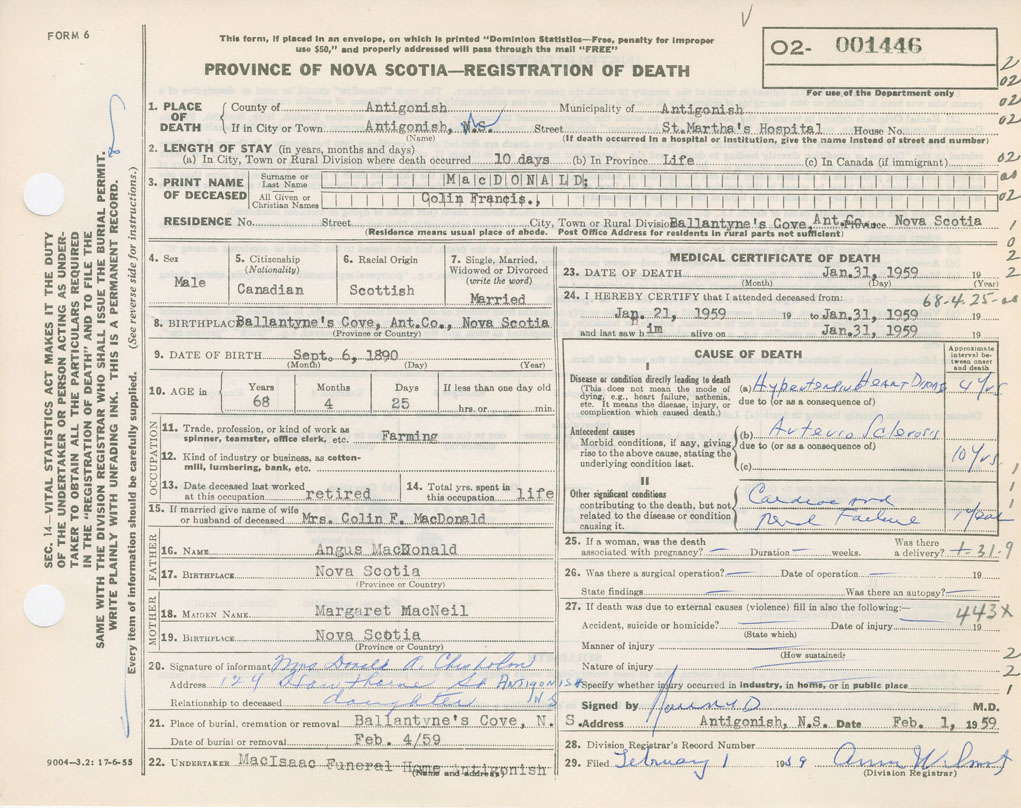 FORM 6
This form, if placed in an envelope, on which is printed "Dominion Statistics—Free, penalty for improper
use $50," and properly addressed will pass through the mail "FREE"
PROVINCE OF NOVA SCOTIA—REGISTRATION OF DEATH
O2- 001446
For use of the Department only
SEC. 14—VITAL STATISTICS ACT MAKES IT THE DUTY
OF THE UNDERTAKER OR PERSON ACTING AS UNDER-
TAKER TO OBTAIN ALL THE PARTICULARS REQUIRED
IN THE "REGISTRATION OF DEATH" AND TO FILE THE
SAME WITH THE DIVISION REGISTRAR WHO SHALL ISSUE THE BURIAL PERMIT.
WRITE PLAINLY WITH UNFADING INK. THIS IS A PERMANENT RECORD.
Every item of information should be carefully supplied. (See reverse side for instructions.)
1. PLACE OF DEATH County of Antigonish Municipality of Antigonish
If in City or Town Antigonish, N.S. Street St.Martha's Hospital House No.
(Name) (If death occurred in a hospital or institution, give the name instead of street and number)
2. LENGTH OF STAY (in years, months and days)
(a) In City, Town or Rural Division where death occurred 10 days (b) In Province Life (c) In Canada (if immigrant)
3. PRINT NAME OF DECEASED Surname or Last Name MacDONALD;
All Given or Christian Names Colin Francis.,
RESIDENCE No. Street City, Town or Rural Division Ballantyne's Cove, Ant.Co., Province Nova Scotia
(Residence means usual place of abode. Post Office Address for residents in rural parts not sufficient)
4. Sex Male
5. Citizenship (Nationality) Canadian
6. Racial Origin Scottish
7. Single, Married, Widowed or Divorced (write the word) Married
8. BIRTHPLACE Ballantyne's Cove, Ant.Co., Nova Scotia
(Province or Country)
9. DATE OF BIRTH Sept. 6, 1890
(Month) (Day) (Year)
10. AGE in Years 68 Months 4 Days 25 If less than one day old
hrs. or min.
OCCUPATION
11. Trade, profession, or kind of work as spinner, teamster, office clerk, etc. Farming
12. Kind of industry or business, as cotton-mill, lumbering, bank, etc.
13. Date deceased last worked at this occupation retired
14. Total yrs. spent in this occupation life
15. If married give name of wife or husband of deceased Mrs. Colin F. MacDonald
FATHER
16. NAME Angus MacDonald
17. BIRTHPLACE Nova Scotia
(Province or Country)
MOTHER
18. MAIDEN NAME Margaret MacNeil
19. BIRTHPLACE Nova Scotia
(Province or Country)
20. Signature of informant Mrs Donald A. Chisholm
Address 129 Hawthorne St Antigonish
Relationship to deceased daughter N S
21. Place of burial, cremation or removal Ballantyne's Cove, N. S.
Date of burial or removal Feb. 4/59
22. UNDERTAKER MacIsaac Funeral Home Antigonish
(Name and address)
9004—3.2: 17-6-55
MEDICAL CERTIFICATE OF DEATH
23. DATE OF DEATH Jan.31, 1959 19
(Month) (Day) (Year)
68-4-25
24. I HEREBY CERTIFY that I attended deceased from:
Jan. 21, 1959 19 to Jan.31, 1959
and last saw him alive on Jan.31, 1959
CAUSE OF DEATH
Approximate interval between onset and death
I
Disease or condition directly leading to death
(This does not mean the mode of dying, e.g., heart failure, asthenia, etc. It means the disease, injury, or complication which caused death.)
(a) Hypertensive Heart Disease 4 yrs
due to (or as a consequence of)
Antecedent causes
Morbid conditions, if any, giving rise to the above cause, stating the underlying condition last.
(b) Arterio Sclerosis 10 yrs.
due to (or as a consequence of)
(c)
II
Other significant conditions
contributing to the death, but not related to the disease or condition causing it.
Cardiac and
renal Failure 1 year
25. If a woman, was the death associated with pregnancy? Duration weeks. Was there a delivery?
26. Was there a surgical operation? Date of operation 19
State findings Was there an autopsy?
27. If death was due to external causes (violence) fill in also the following:
443x
Accident, suicide or homicide? Date of injury 19
(State which)
Manner of injury
(How sustained)
Nature of injury
Specify whether injury occurred in industry, in home, or in public place
Signed by M.D.
Address Antigonish, N.S. Date Feb. 1, 1959.
28. Division Registrar's Record Number
29. Filed February 1 1959
(Division Registrar)